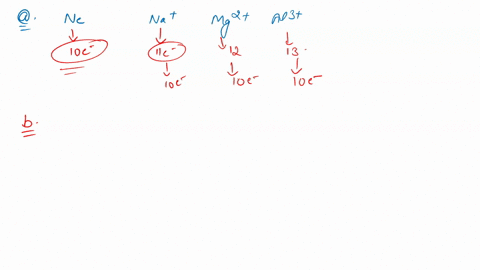 a. Ne Na+ Mg2+ Al3+
10e- 11e- 12 13.
10e- 10e- 10e-
b.